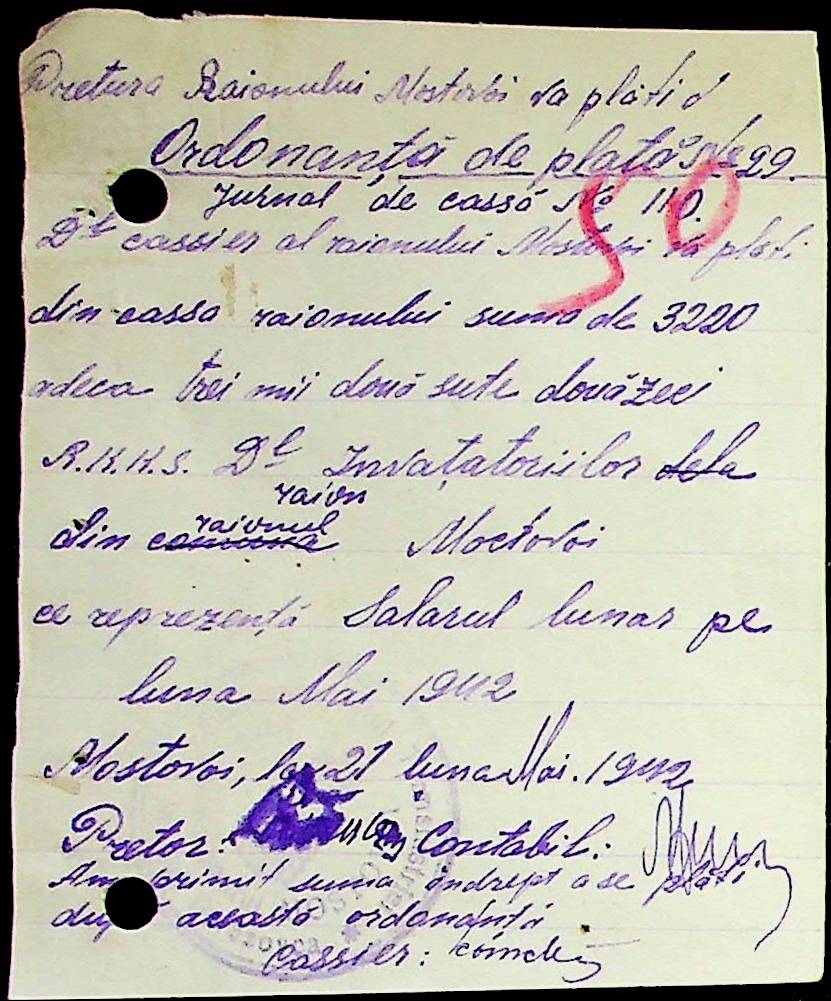 Pretura Raionului Mostovoi va plăti d
Ordonanță de plată No 29.
50
Jurnal de cassă No 110.
Dl cassier al raionului Mostovoi va plăti
din cassa raionului suma de 3220
adeca trei mii două sute douăzeci
R.K.K.S. Dl Invatatoriilor dela
raion
raionul
din comuna Moctovoi
ce reprezentă Salarul lunar pe
luna Mai 1942
Mostovoi, la 21 luna Mai. 1942
Pretor: Contabil:
Am primit suma îndrept a se plăti
după această ordonanță
Cassier: